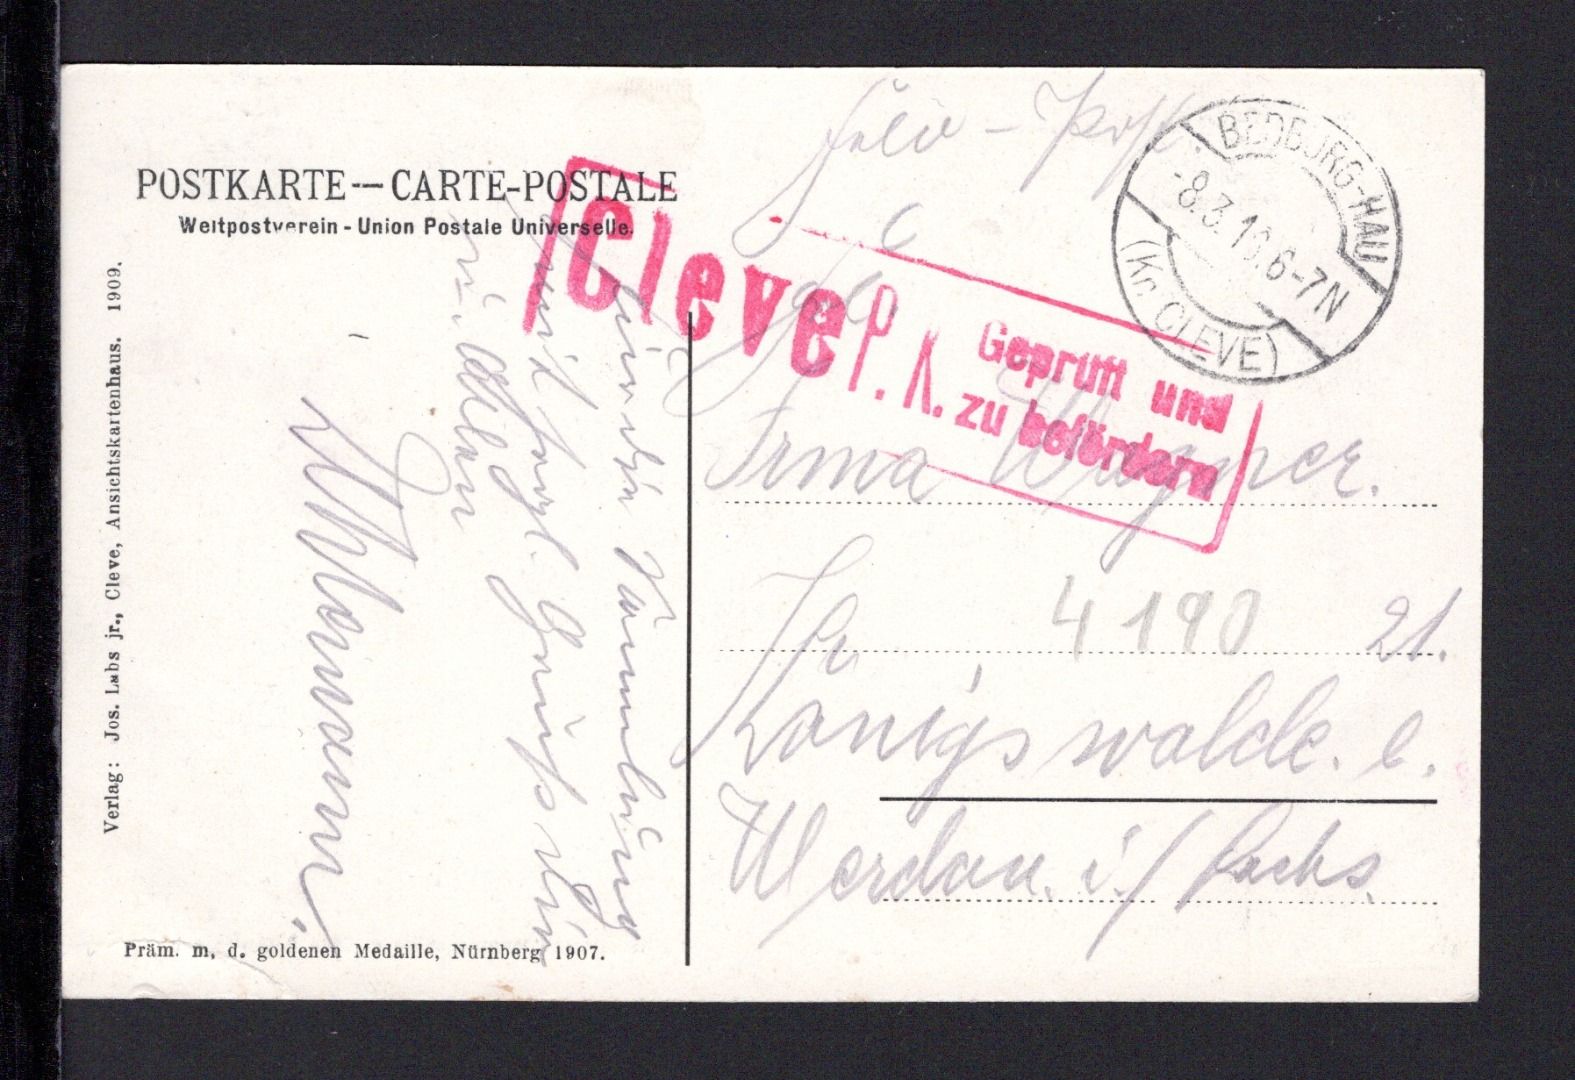 POSTKARTE -- CARTE-POSTALE
Weltpostverein - Union Postale Universelle.
Verlag: Jos. Labs jr., Cleve, Ansichtskartenhaus. 1909.
Präm. m. d. goldenen Medaille, Nürnberg 1907.
Sammlung
mit
Gruß
Feld - Post
BEDBURG-HAU
-8.3.16.6-7N
(Kr. CLEVE)
Cleve P. K. Geprüft und
zu befördern
Irma Wagner.
4190 21.
Königswalde.
Werdau. i./Sachs.